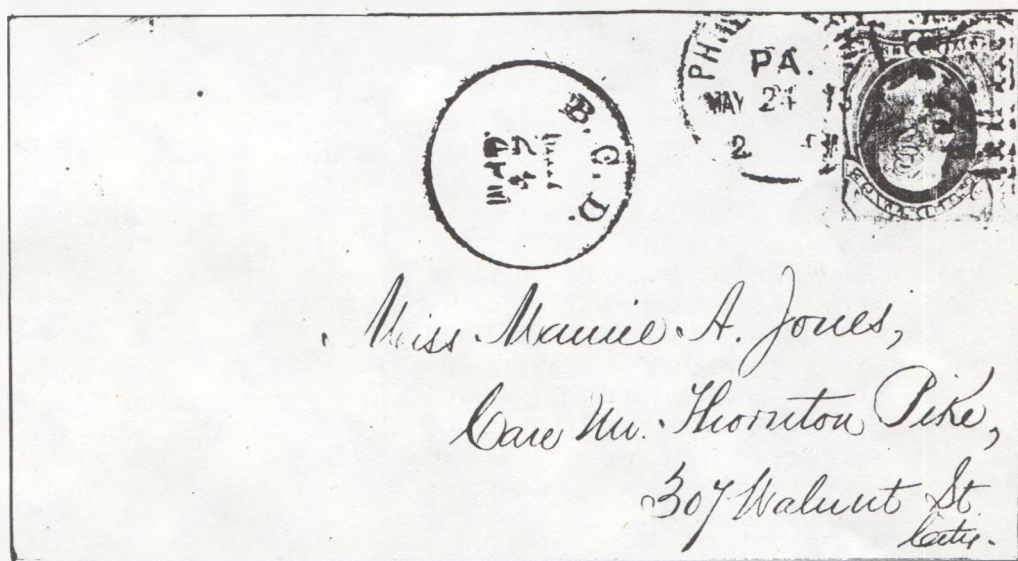 PHIL
PA.
MAY 24
2
B. C. D.
Miss Mamie A. Jones,
Care Mr. Thornton Pike,
307 Walnut St
City.